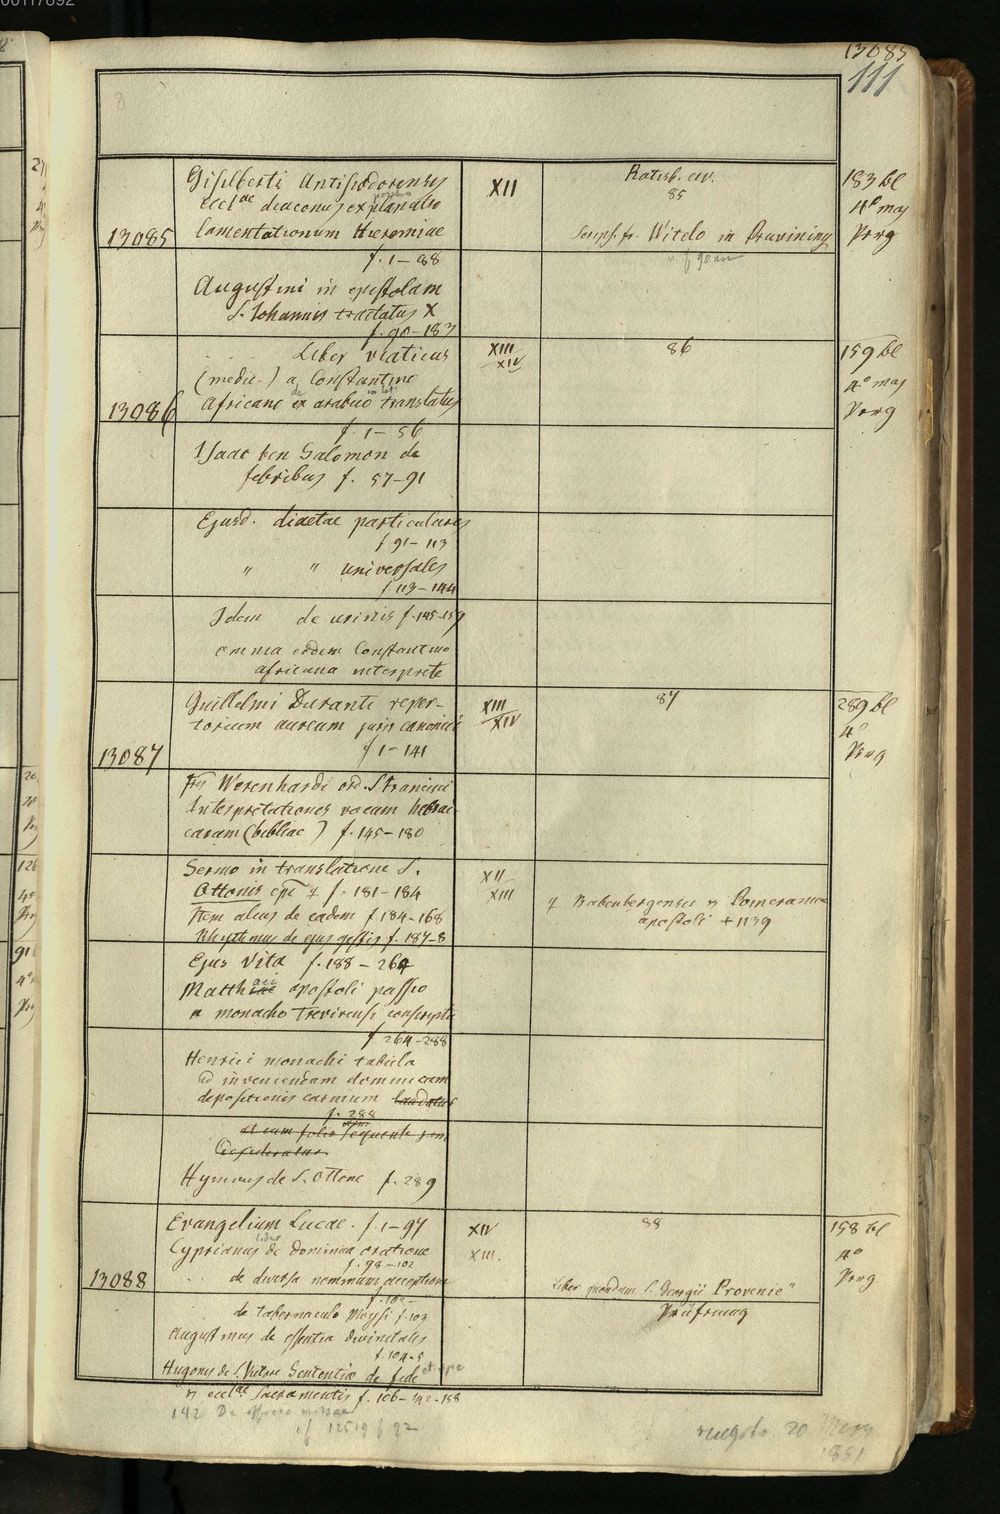 00117892
13085
111
Giselberti Antisiodorensis
eccl.ae diaconus explanatio
13085 lamentationum Hieremiae
f. 1–88
XII
Ratisb. civ.
85
Scrips. fr. Witelo in Pruvining
183 bl
4° maj
Perg
Augustini in epistolam
S. Iohannis tractatus X
f. 90–183
Liber viaticus
(medic.) a Constantino
13086 Africano ex arabico translatus
f. 1–56
XIII
XIV
86
159 bl
4° maj
Perg
Isaac ben Salomon de
febribus f. 57–91
Ejusd. diaetae particulares
f 91–113
" " universales
f 113–144
Idem de urinis f. 145–159
omnia eodem Constantino
africano interprete
Guillelmi Duranti reper-
torium aureum juris canonici
13087 f 1–141
XIII
XIV
87
289 bl
4°
Perg
Fris Werenhardi ord. S Francisci
Interpretationes vocum hebrai-
carum (bibliae) f. 145–180
Sermo in translatione S.
Ottonis epi f. 181–184
Item alius de eadem f 184–168
Rhythmus de ejus gestis f. 187–8
XII
XIII
Babenbergensis & Pomeraniae
apostoli + 1139
Ejus Vita f. 188–264
Matthaei apostoli passio
a monacho Trevirensi conscripta
f 264–288
Henrici monachi tabula
ad inveniendam dominicam
depositionis carnium laudatur
f. 288
et cum folio sequente
desideratur.
Hymnus de S. Ottone f. 289
Evangelium Lucae. f. 1–97
Cyprianus de dominica oratione
f. 98–102
13088 de diversa nominum acceptione
XIV
XIII.
88
Liber quondam S. Georgii Provenie"
Prüfening
158 bl
4°
Perg
de tabernaculo Moysi f. 103
Augustinus de essentia divinitatis
f. 104–5
Hugonis de S. Victore Sententiae de fide
& eccl.ae Sacramentis f. 106–142–158
142 De
cf 12519 f 22
20
1851